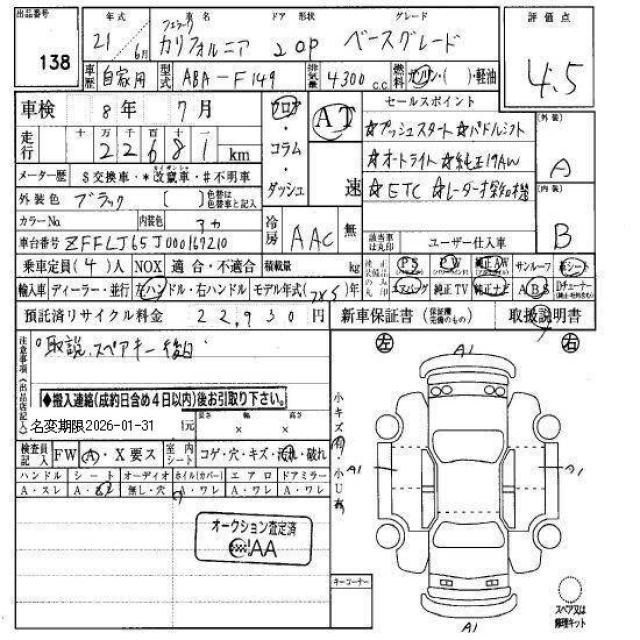 出品番号 138
年式 21 6月
車名 フェラーリ カリフォルニア
ドア 形状 2 OP
グレード ベースグレード
評価点 4.5
車歴 自家用
型式 ABA-F149
排気量 4300 c.c.
燃料 ガソリン・( )・軽油
車検 8年 7月
フロア・コラム・ダッシュ
AT 速
セールスポイント
☆プッシュスタート☆パドルシフト
☆オートライト☆純正19AW
☆ETC ☆レーダー探知機
(外装) A
(内装) B
走行 十 万 千 百 十 一
22681 km
メーター歴 $交換車・*改竄車・#不明車
外装色 ブラック [ ] 色替は色替車と記入
カラーNo. 内装色 アカ
冷房 AAC 無
車台番号 ZFFLJ65J000167210
該当車は丸印 ユーザー仕入車
乗車定員(4)人 NOX 適合・不適合 積載量 kg
純正装備品のみ丸印 PS PW 純正AW サンルーフ 革シート
輸入車 ディーラー・並行 左ハンドル・右ハンドル モデル年式( )年
エアバッグ 純正TV 純正ナビ ABS Dチューナー
預託済リサイクル料金 22,930円
新車保証書 (保証継完備のもの) 取扱説明書
注意事項(出品店記入)
取説、スペアキー後日
◆搬入連絡(成約日含め4日以内)後お引取り下さい。
名変期限2026-01-31 元
長さ × 幅 × 高さ
検査員記入 FW A・X要ス
室内シート コゲ・穴・キズ・汚れ・破れ
ハンドル シート オーディオ ホイル(カバー) エアロ ドアミラー
A・スレ A・ 無し・穴 A・ワレ A・ワレ A・ワレ
オークション査定済
AA
小キズ ・小U
左 右
A1
A1
A1
A1
キーコーナー
スペア又は修理キット